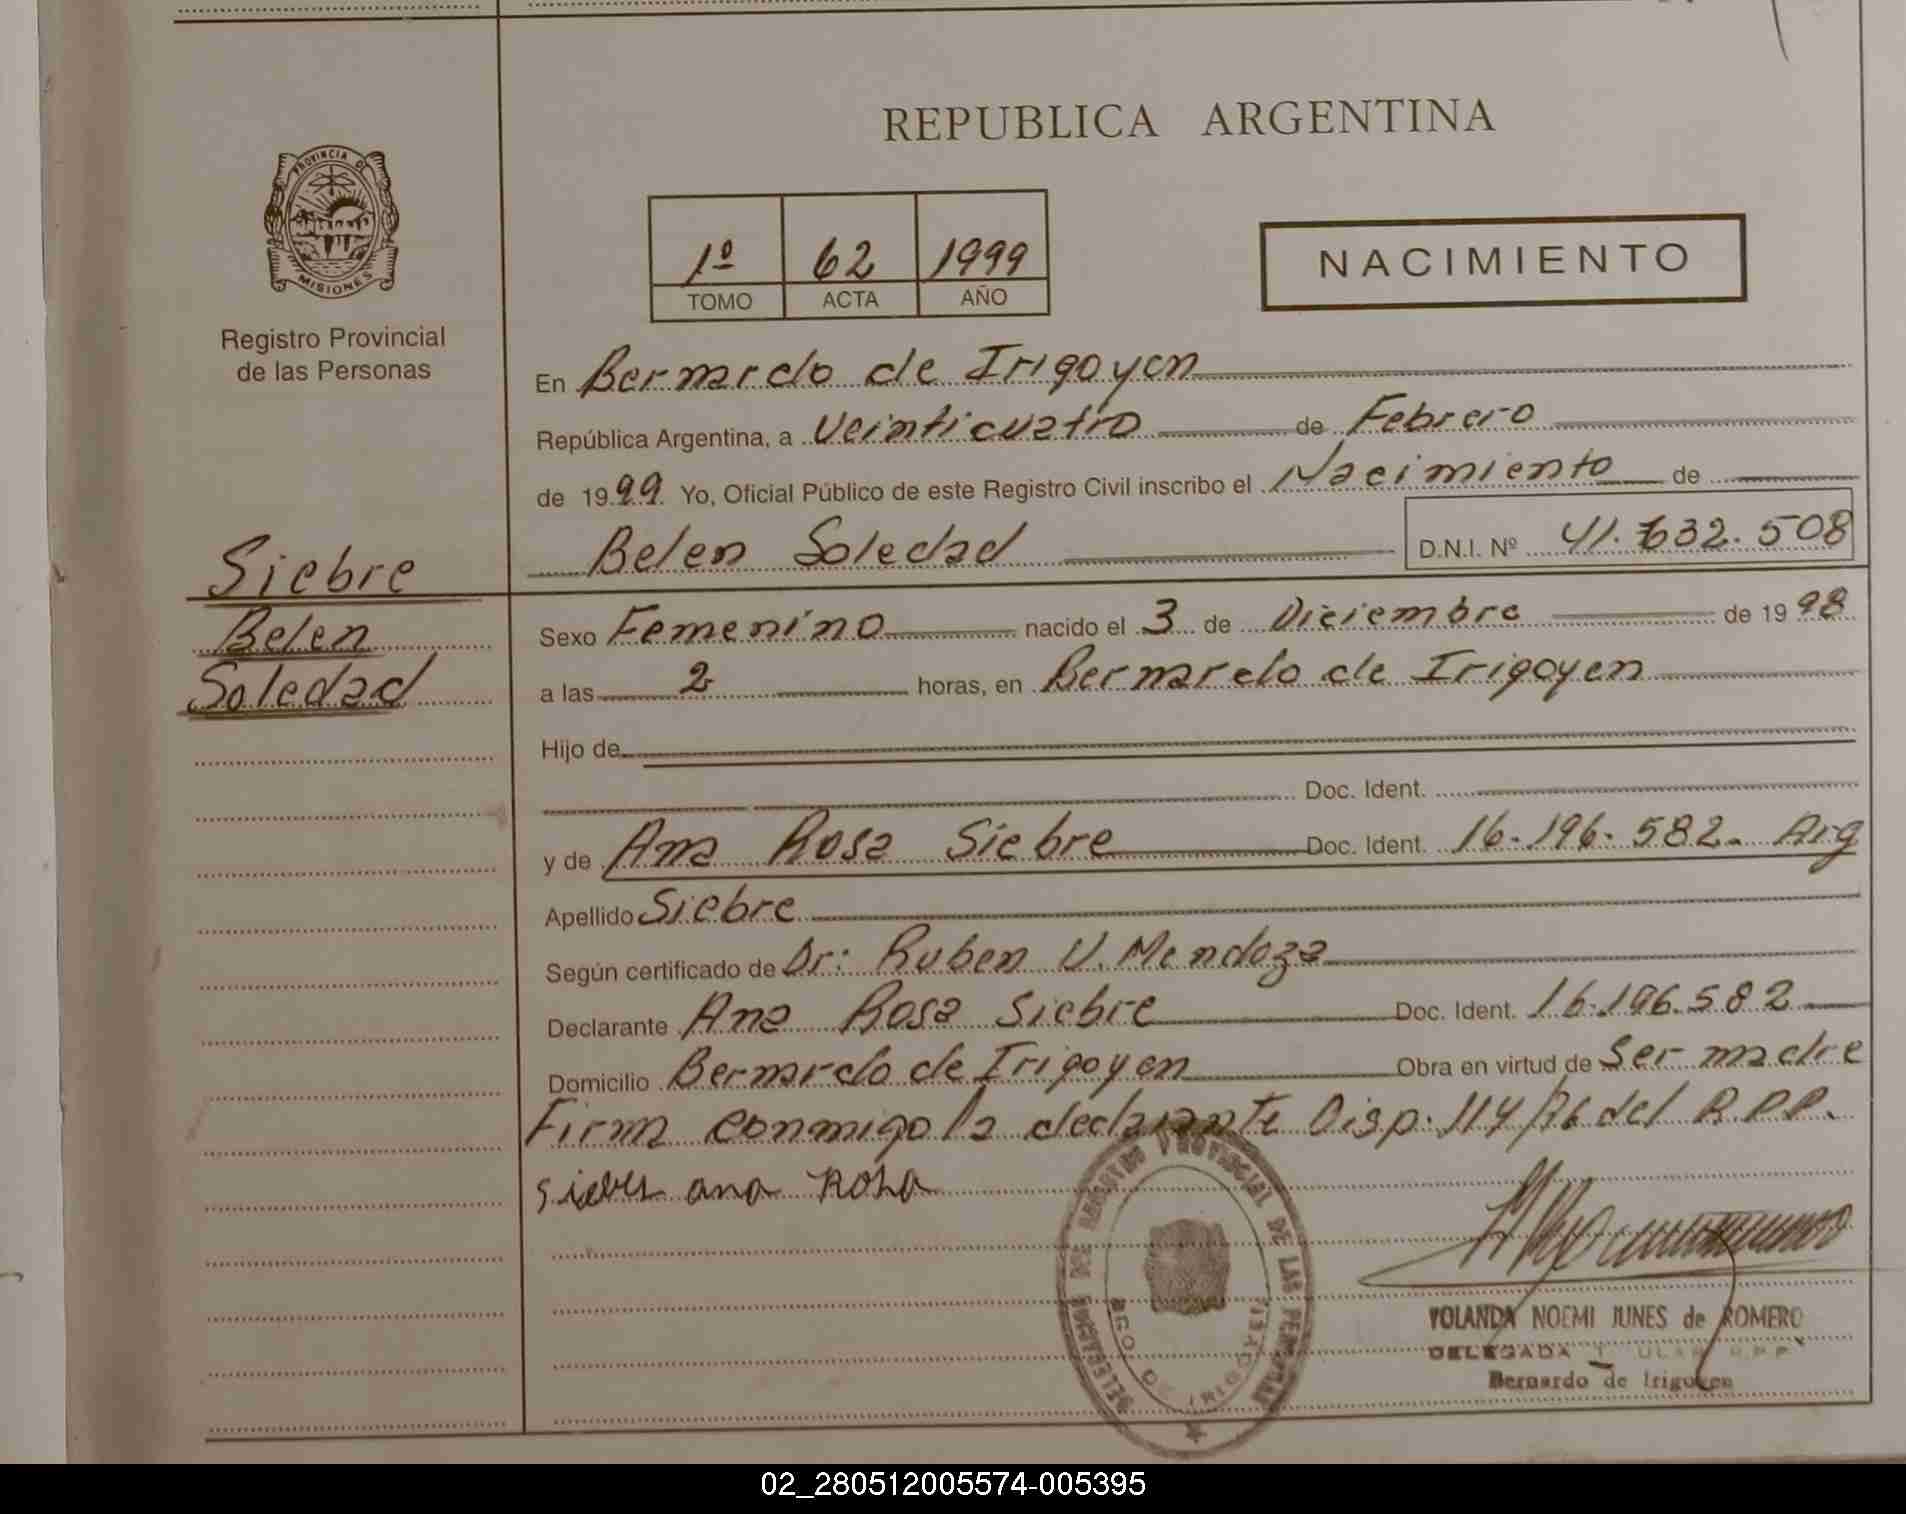 REPUBLICA ARGENTINA
PROVINCIA DE
MISIONES
Registro Provincial
de las Personas
1º 62 1999
TOMO ACTA AÑO
NACIMIENTO
En Bernardo de Irigoyen
República Argentina, a Veinticuatro de Febrero
de 1999 Yo, Oficial Público de este Registro Civil inscribo el Nacimiento de
Belen Soledad D.N.I. Nº 41.632.508
Siebre
Belen
Soledad
Sexo Femenino nacido el 3 de Diciembre de 1998
a las 2 horas, en Bernardo de Irigoyen
Hijo de
Doc. Ident.
y de Ana Rosa Siebre Doc. Ident. 16.196.582. Arg
Apellido Siebre
Según certificado de Dr: Ruben V. Mendoza
Declarante Ana Rosa Siebre Doc. Ident. 16.196.582
Domicilio Bernardo de Irigoyen Obra en virtud de Ser madre
Firma conmigo la declarante Disp. 114/76 del R.P.P.
ana Rosa
REGISTRO PROVINCIAL DE LAS PERSONAS
BRO. DE IRIGOYEN
YOLANDA NOEMI JUNES de ROMERO
DELEGADA R.P.P.
Bernardo de Irigoyen
02_280512005574-005395